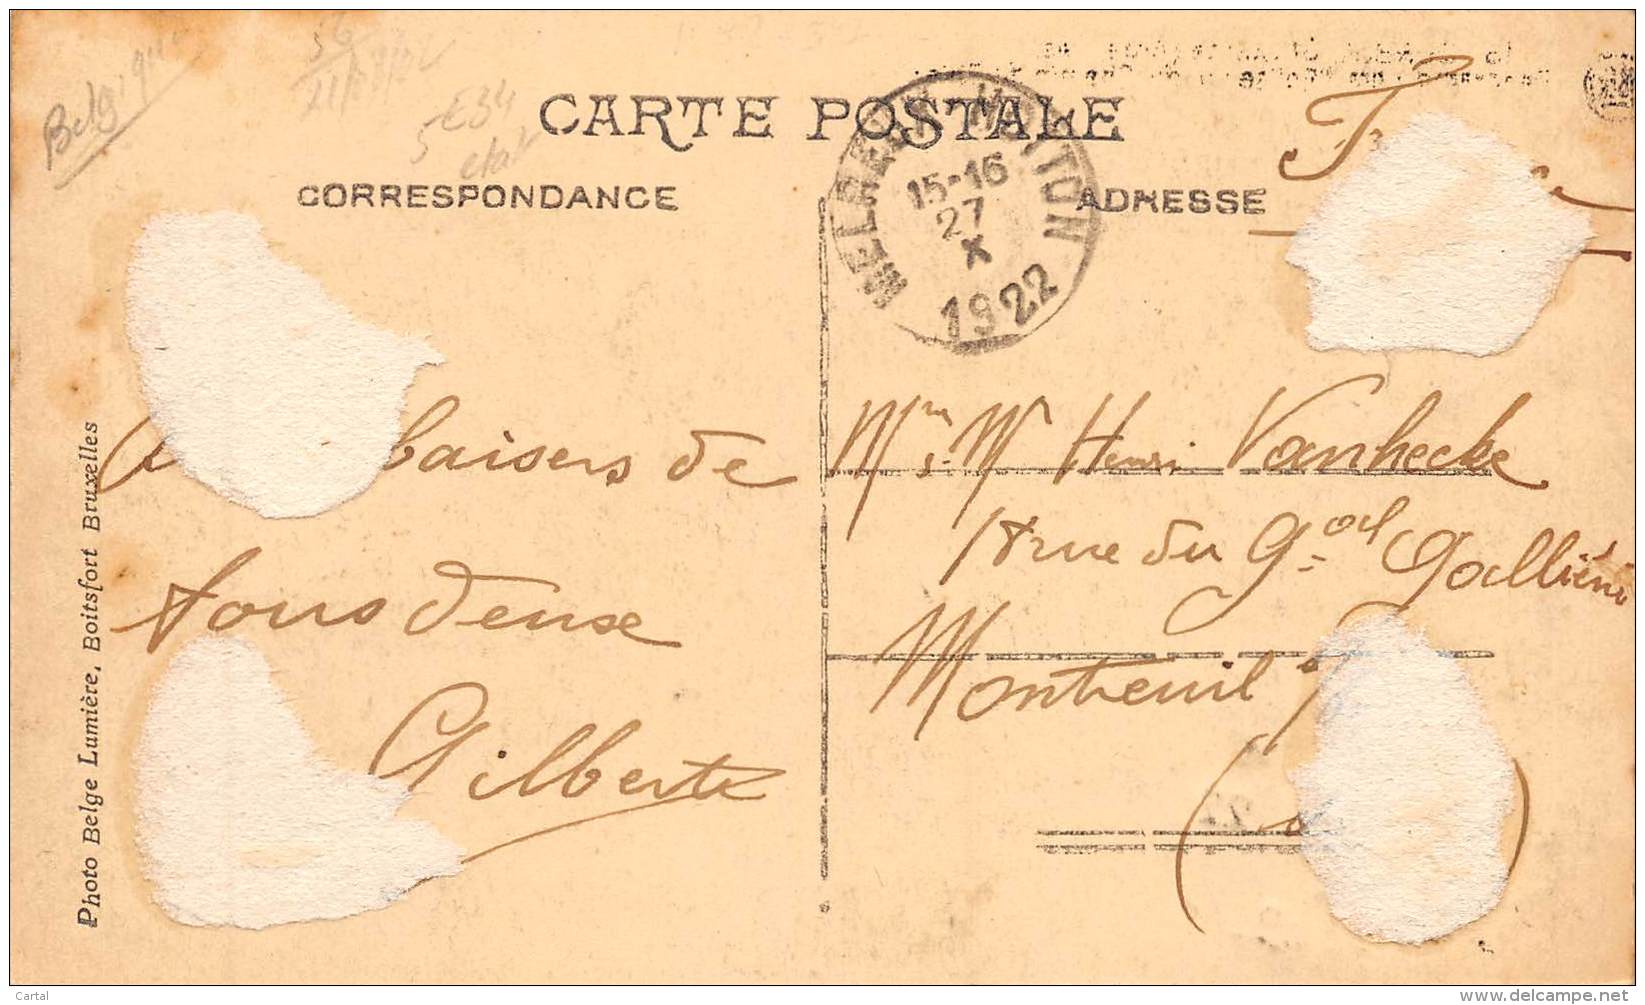 Belgique
CARTE POSTALE
CORRESPONDANCE
ADRESSE
MELREUX-HOTTON
15-16
27
X
1922
baisers de
tous deux
Gilberte
Mr & Me Henri Vanhecke
rue du Gal Galliéni
Montreuil
Photo Belge Lumière, Boitsfort Bruxelles
Cartal
www.delcampe.net